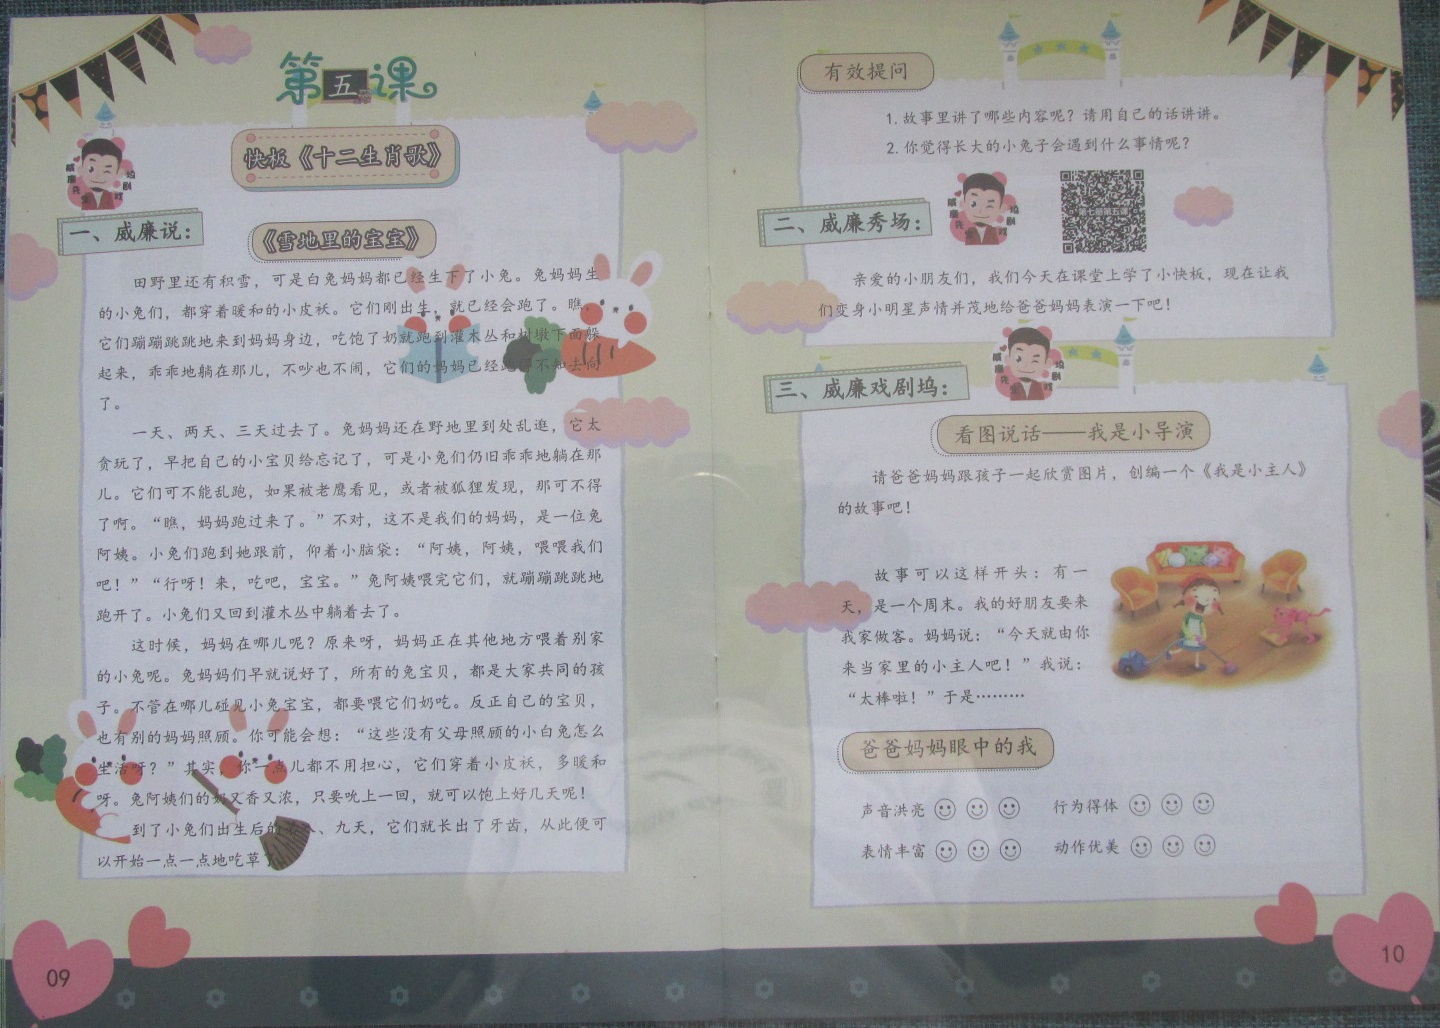 第五课
快板《十二生肖歌》
一、威廉说：
《雪地里的宝宝》
田野里还有积雪，可是白兔妈妈都已经生下了小兔。兔妈妈生
的小兔们，都穿着暖和的小皮袄。它们刚出生，就已经会跑了。瞧，
它们蹦蹦跳跳地来到妈妈身边，吃饱了奶就跑到灌木丛和树墩下面躲
起来，乖乖地躺在那儿，不吵也不闹，它们的妈妈已经跑得不知去向
了。
一天、两天、三天过去了。兔妈妈还在野地里到处乱逛，它太
贪玩了，早把自己的小宝贝给忘记了，可是小兔们仍旧乖乖地躺在那
儿。它们可不能乱跑，如果被老鹰看见，或者被狐狸发现，那可不得
了啊。“瞧，妈妈跑过来了。”不对，这不是我们的妈妈，是一位兔
阿姨。小兔们跑到她跟前，仰着小脑袋：“阿姨，阿姨，喂喂我们
吧！”“行呀！来，吃吧，宝宝。”兔阿姨喂完它们，就蹦蹦跳跳地
跑开了。小兔们又回到灌木丛中躺着去了。
这时候，妈妈在哪儿呢？原来呀，妈妈正在其他地方喂着别家
的小兔呢。兔妈妈们早就说好了，所有的兔宝贝，都是大家共同的孩
子。不管在哪儿碰见小兔宝宝，都要喂它们奶吃。反正自己的宝贝，
也有别的妈妈照顾。你可能会想：“这些没有父母照顾的小白兔怎么
生活呀？”其实，你一点儿都不用担心，它们穿着小皮袄，多暖和
呀。兔阿姨们的奶又香又浓，只要吮上一回，就可以饱上好几天呢！
到了小兔们出生后的第八、九天，它们就长出了牙齿，从此便可
以开始一点一点地吃草了。
09
有效提问
1. 故事里讲了哪些内容呢？请用自己的话讲讲。
2. 你觉得长大的小兔子会遇到什么事情呢？
二、威廉秀场：
第七册第五课
亲爱的小朋友们，我们今天在课堂上学了小快板，现在让我
们变身小明星声情并茂地给爸爸妈妈表演一下吧！
三、威廉戏剧坞：
看图说话——我是小导演
请爸爸妈妈跟孩子一起欣赏图片，创编一个《我是小主人》
的故事吧！
故事可以这样开头：有一
天，是一个周末。我的好朋友要来
我家做客。妈妈说：“今天就由你
来当家里的小主人吧！”我说：
“太棒啦！”于是………
爸爸妈妈眼中的我
声音洪亮 行为得体
表情丰富 动作优美
10